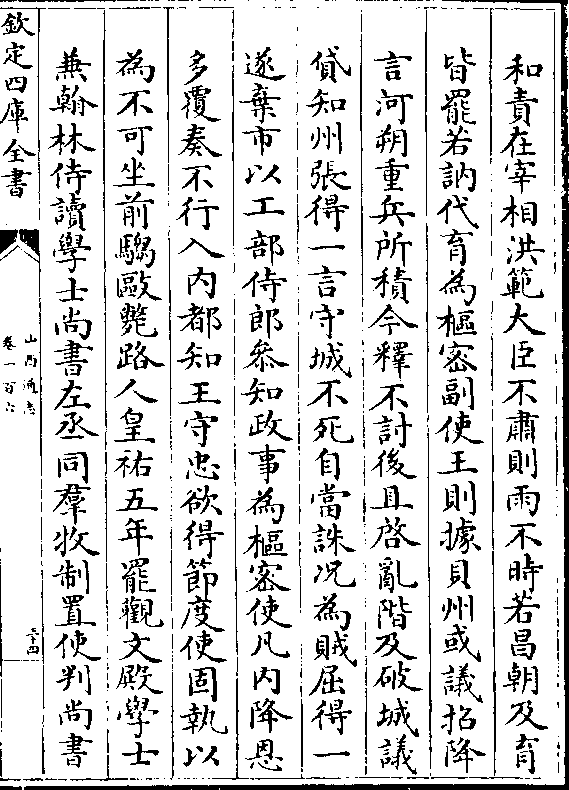 和責在宰相洪範大臣不肅則雨不時若昌朝及育
皆罷若訥代育為樞密副使王則據貝州或議招降
言河朔重兵所積今釋不討後且啓亂階及破城議
貸知州張得一言守城不死自當誅况為賊屈得一
遂棄市以工部侍郎叅知政事為樞密使凡内降恩
多覆奏不行入内都知王守忠欲得節度使固執以
為不可坐前騶毆斃路人皇祐五年罷觀文殿學士
兼翰林侍讀學士尚書左丞同羣牧制置使判尚書
欽定四庫全書
山西通志
卷一百六
三十四